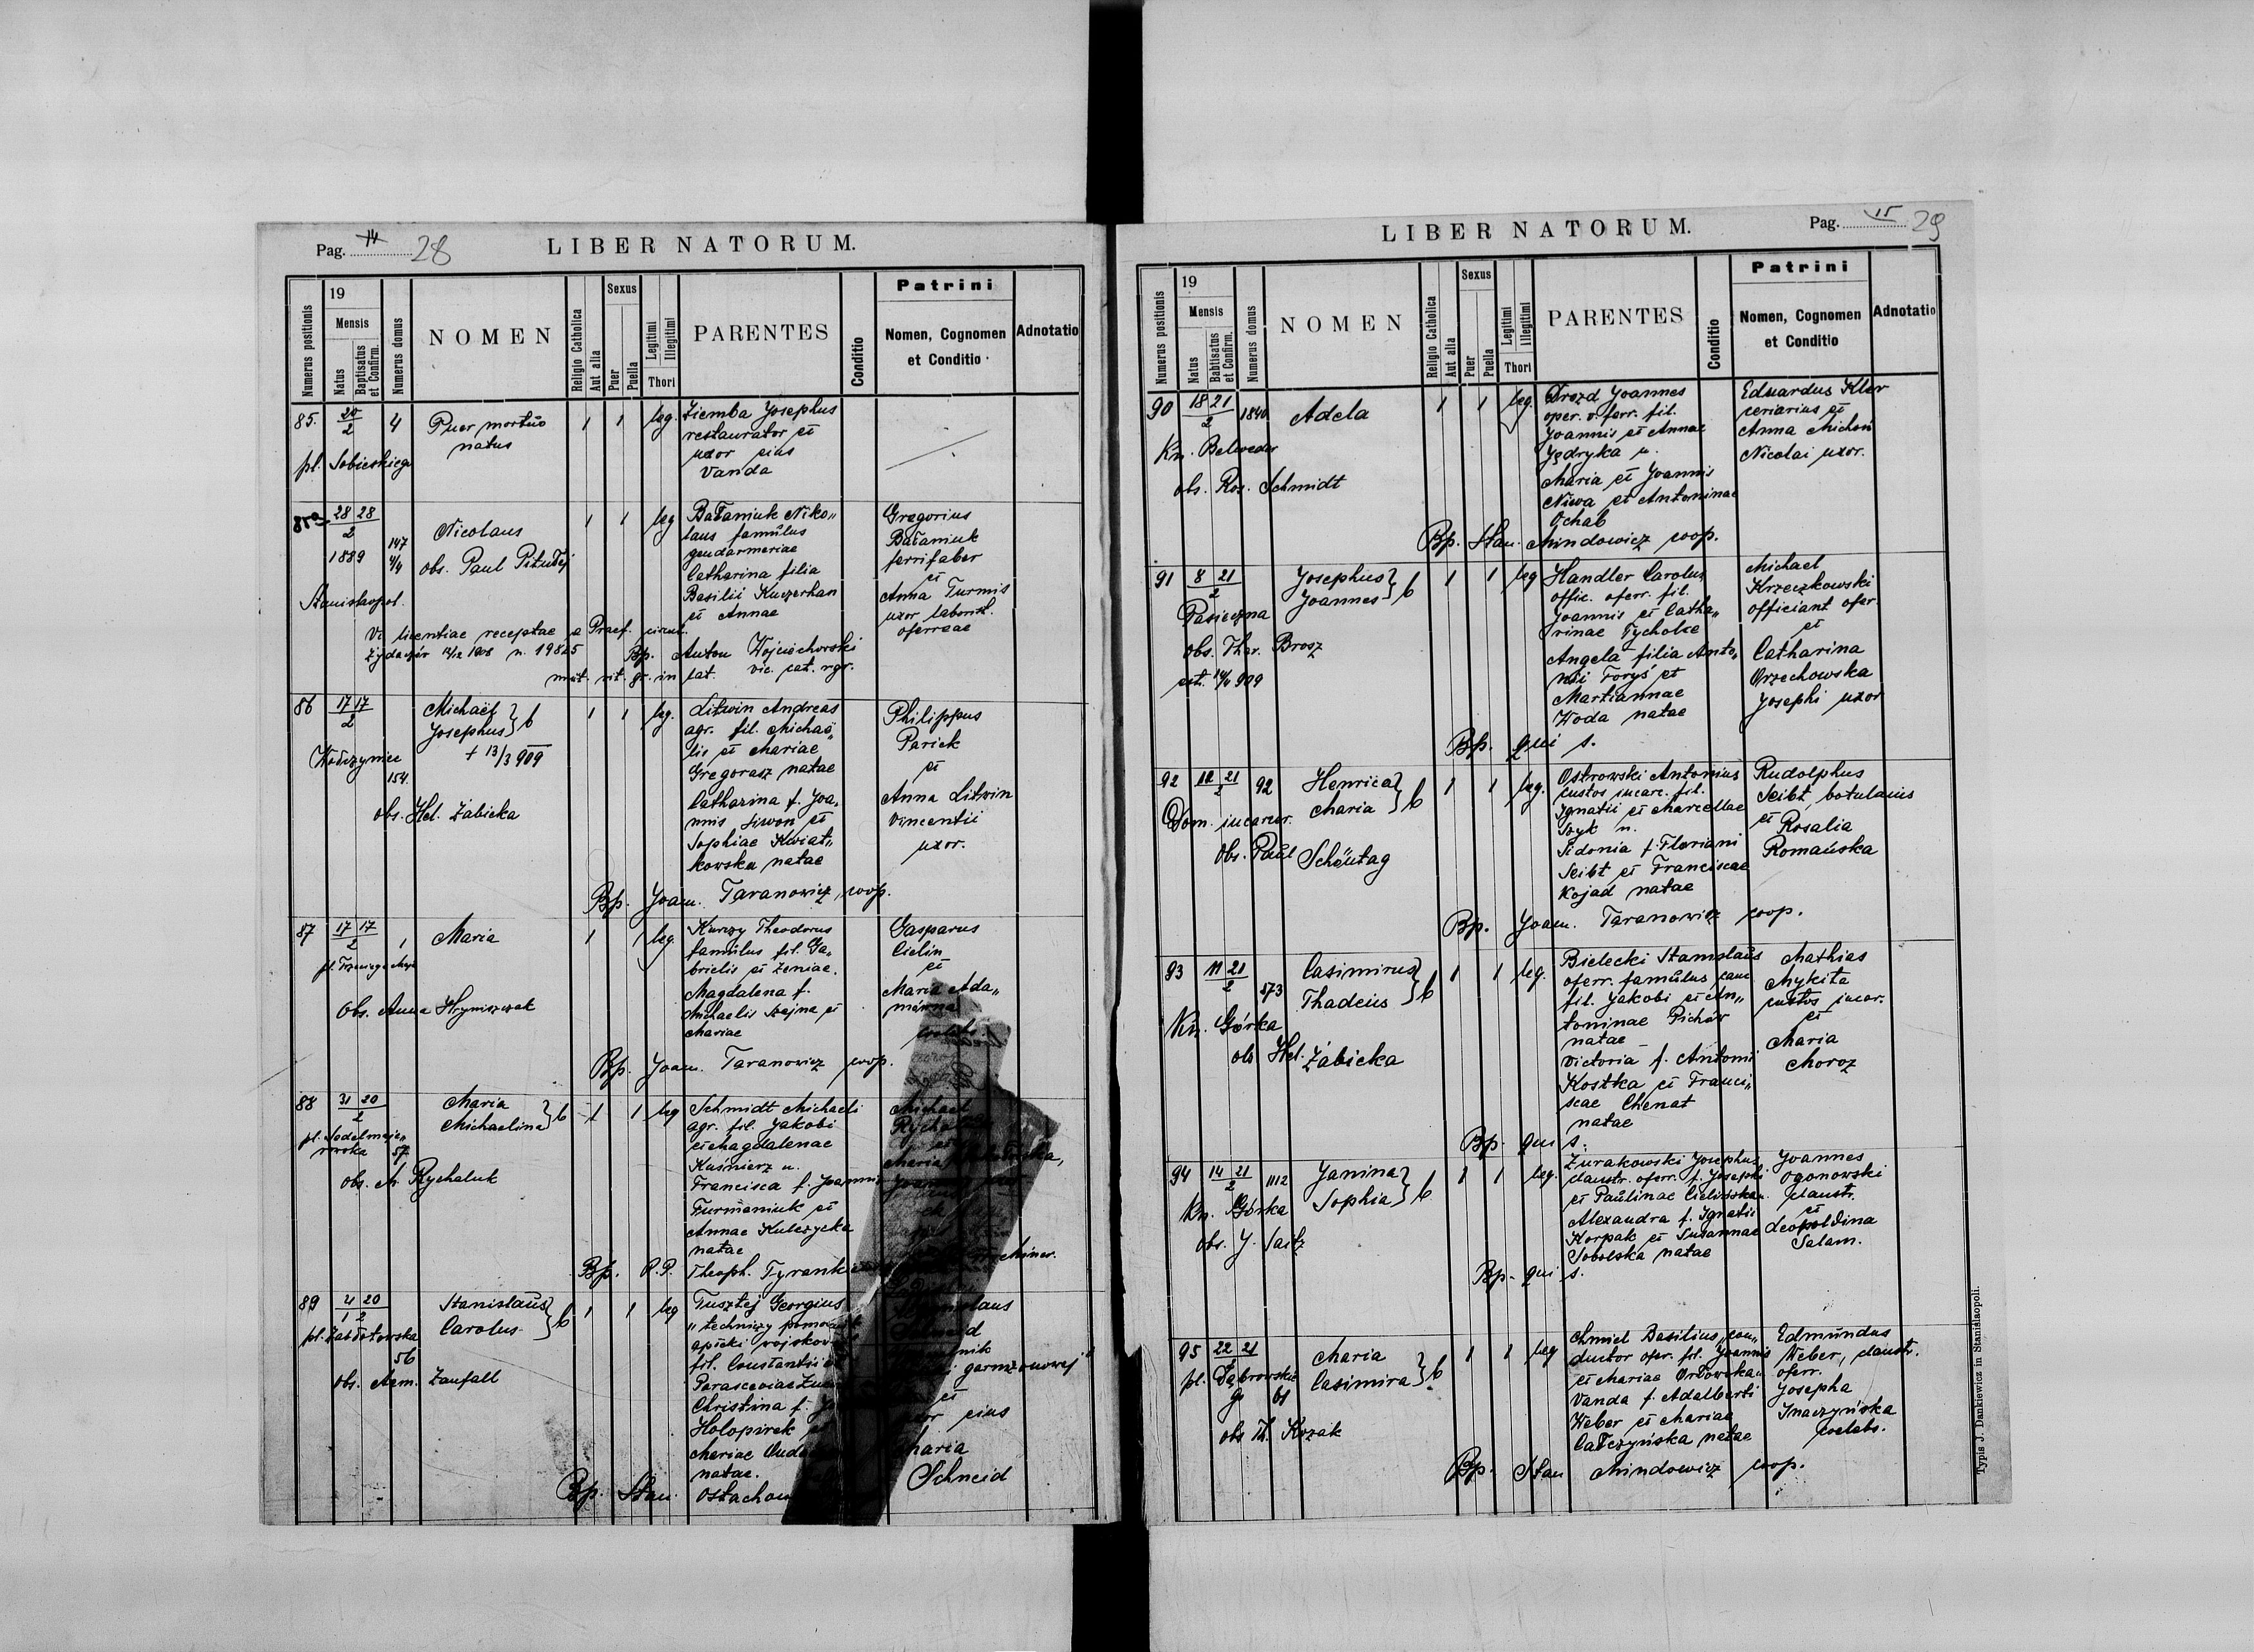 Pag. 14 28
LIBER NATORUM.
Numerus positionis
19
Mensis
Natus
Baptisatus et Confirm.
Numerus domus
NOMEN
Religio Catholica
Aut alia
Sexus
Puer
Puella
Legitimi
Illegitimi
Thori
PARENTES
Conditio
Patrini
Nomen, Cognomen
et Conditio
Adnotatio
85. 20/2 4
pl. Sobieskiego
Puer mortuo
natus
1 1 leg.
Ziemba Josephus
restaurator et
uxor eius
Vanda
85a 28 28/2
1889
147 4/4
Stanislaopol.
Nicolaus
obs. Paul
1 1 leg
Bataniuk Niko„
laus famulus
gendarmeriae
Catharina filia
Basilii Kuczerhan
et Annae
Gregorius
Bataniuk
ferrifaber
et
Anna Turmis
uxor laborat.
oferreae
Vi licentiae receptae a Praef. circul.
Żydaczów 1908 n. 19825
Bp. Anton Wojciechowski
mat. rit. gr. in lat. vic. cat. rgr.
86 17 17/2
154.
Michaël
Josephus } b
+ 13/3 909
obs. Hel. Żabicka
1 1 leg.
Litwin Andreas
agr. fil. Michaë„
lis et Mariae
Gregorasz natae
Catharina f. Joa„
nnis Siwon et
Sophiae Kwiat„
kowska natae
Philippus
Parick
et
Anna Litwin
Vincentii
uxor.
Bp. Joan. Taranowicz, coop.
87 17 17/2 1
Maria
Obs. Anna Hryniszczak
1 1 leg.
Kurczy Theodorus
famulus fil. Ga„
brielis et Xeniae.
Magdalena f.
Michaelis Szajna et
Mariae
Gasparus
Cielin
et
Maria Ada„
mówna
Bp. Joan. Taranowicz coop.
88 31 20/2
57
Maria
Michaelina } b
obs. M. Rychaluk
1 1 leg
Schmidt Michaeli
agr. fil. Jakobi
et Magdalenae
Kuśnierz n.
Francisca f. Joannis
Furmaniuk et
Annae Kulczycka
natae
Michael
Maria
Bp. P.P. Theoph.
89 4 20/1 2
pl. Zabłotowska
56
Stanislaus
Carolus } b
obs. Aem. Zaufall
1 1 leg
Tusztej Georgius
„techniczy
apteki wojskow
fil. Constantii
Parasceviae
Christina f.
Holopirek
Mariae
natae.
garnizonowej"
et
eius
Maria
Schneid
Bp. Stan. Ostachow
LIBER NATORUM.
Pag. 15 29
Numerus positionis
19
Mensis
Natus
Babtisatus et Confirm.
Numerus domus
NOMEN
Religio Catholica
Aut alia
Sexus
Puer
Puella
Legitimi
Illegitimi
Thori
PARENTES
Conditio
Patrini
Nomen, Cognomen
et Conditio
Adnotatio
90 18 21/2 1840
Kn. Belweder
Adela
obs. Ros. Schmidt
1 1 leg.
Drozd Joannes
oper. v. ferr. fil.
Joannis et Annae
Jędryka n.
Maria et Joannis
Niwa et Antoninae
Ochab
Eduardus Kler
ceriarius et
Anna Michoń
Nicolai uxor.
Bp. Stan. Mindowicz coop.
91 8 21/2
Pasieczna
Josephus
Joannes } b
obs. Ther. Brosz
1 1 leg
Handler Carolus
offic. oferr. fil.
Joannis et Catha„
rinae Tycholce
Angela filia Anto„
nii Foryś et
Martiannae
Woda natae
Michael
Krzeczkowski
officiant ofer.
et
Catharina
Orzechowska
Josephi uxor
Bp. qui s.
92 12 21/2 92
Dom. incarcer.
Henrica
Maria } b
Obs. Paul Schöntag
1 1 leg.
Ostrowski Antonius
custos incarc. fil.
Ignatii et Marcellae
Szyk n.
Sidonia f. Floriani
Seibt et Franciscae
Kojad natae
Rudolphus
Seibt, botularius
et
Rosalia
Romańska
Bp. Joan. Taranowicz coop.
93 11 21/2 573
Kn. Górka
Casimirus
Thadeus } b
obs Hel. Żabicka
1 1 leg.
Bielecki Stanislaus
oferr. famulus canc
fil. Jakobi et An„
toninae Pichór
natae
Victoria f. Antonii
Kostka et Franci„
scae Chenat
natae
Mathias
Mykita
custos incar.
et
Maria
Moroz
Bp. qui s.
94 14 21/2 1112
Kn. Górka
Janina
Sophia } b
obs. J. Saitz
1 1 leg.
Żurakowski Josephus
claustr. oferr. f. Josephi
et Paulinae
Alexandra f. Ignatii
Korpak et Susannae
Sobolska natae
Joannes
Ogonowski
claustr.
et
Leopoldina
Salam.
Bp. qui s.
95 22 21
pl. Dąbrowskie
go 61
Maria
Casimira } b
obs Th. Kozak
1 1 leg
Chmiel Basilius „con„
ductor ofer. fil. Joannis
et Mariae Orłowska n
Vanda f. Adalberti
Weber et Mariae
Całczyńska natae
Edmundus
Weber, claustr.
oferr.
Josepha
Inaczyńska
coelebs.
Bp. Stan Mindowicz coop.
Typis J. Dankiewicz in Stanislaopoli.